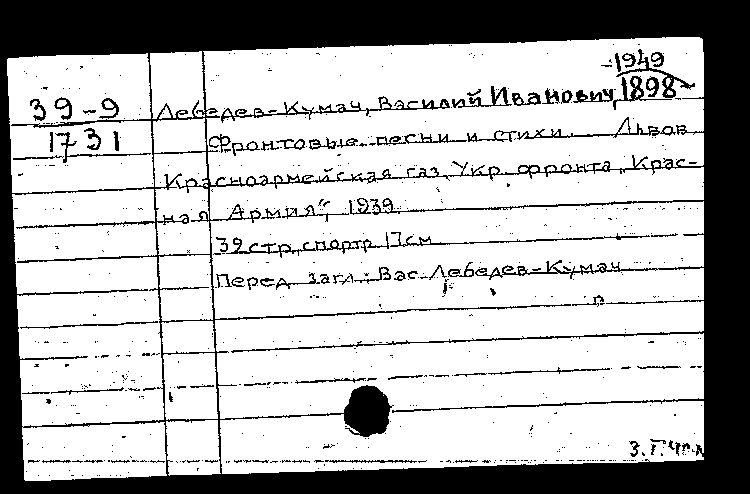 -1949
39-9 Лебедев-Кумач, Василий Иванович, 1898-
1731 Фронтовые песни и стихи. Львов,
Красноармейская газ. Укр. фронта „Крас-
ная Армия", 1939.
39 стр. с портр. 17см.
Перед загл.: Вас. Лебедев-Кумач
п